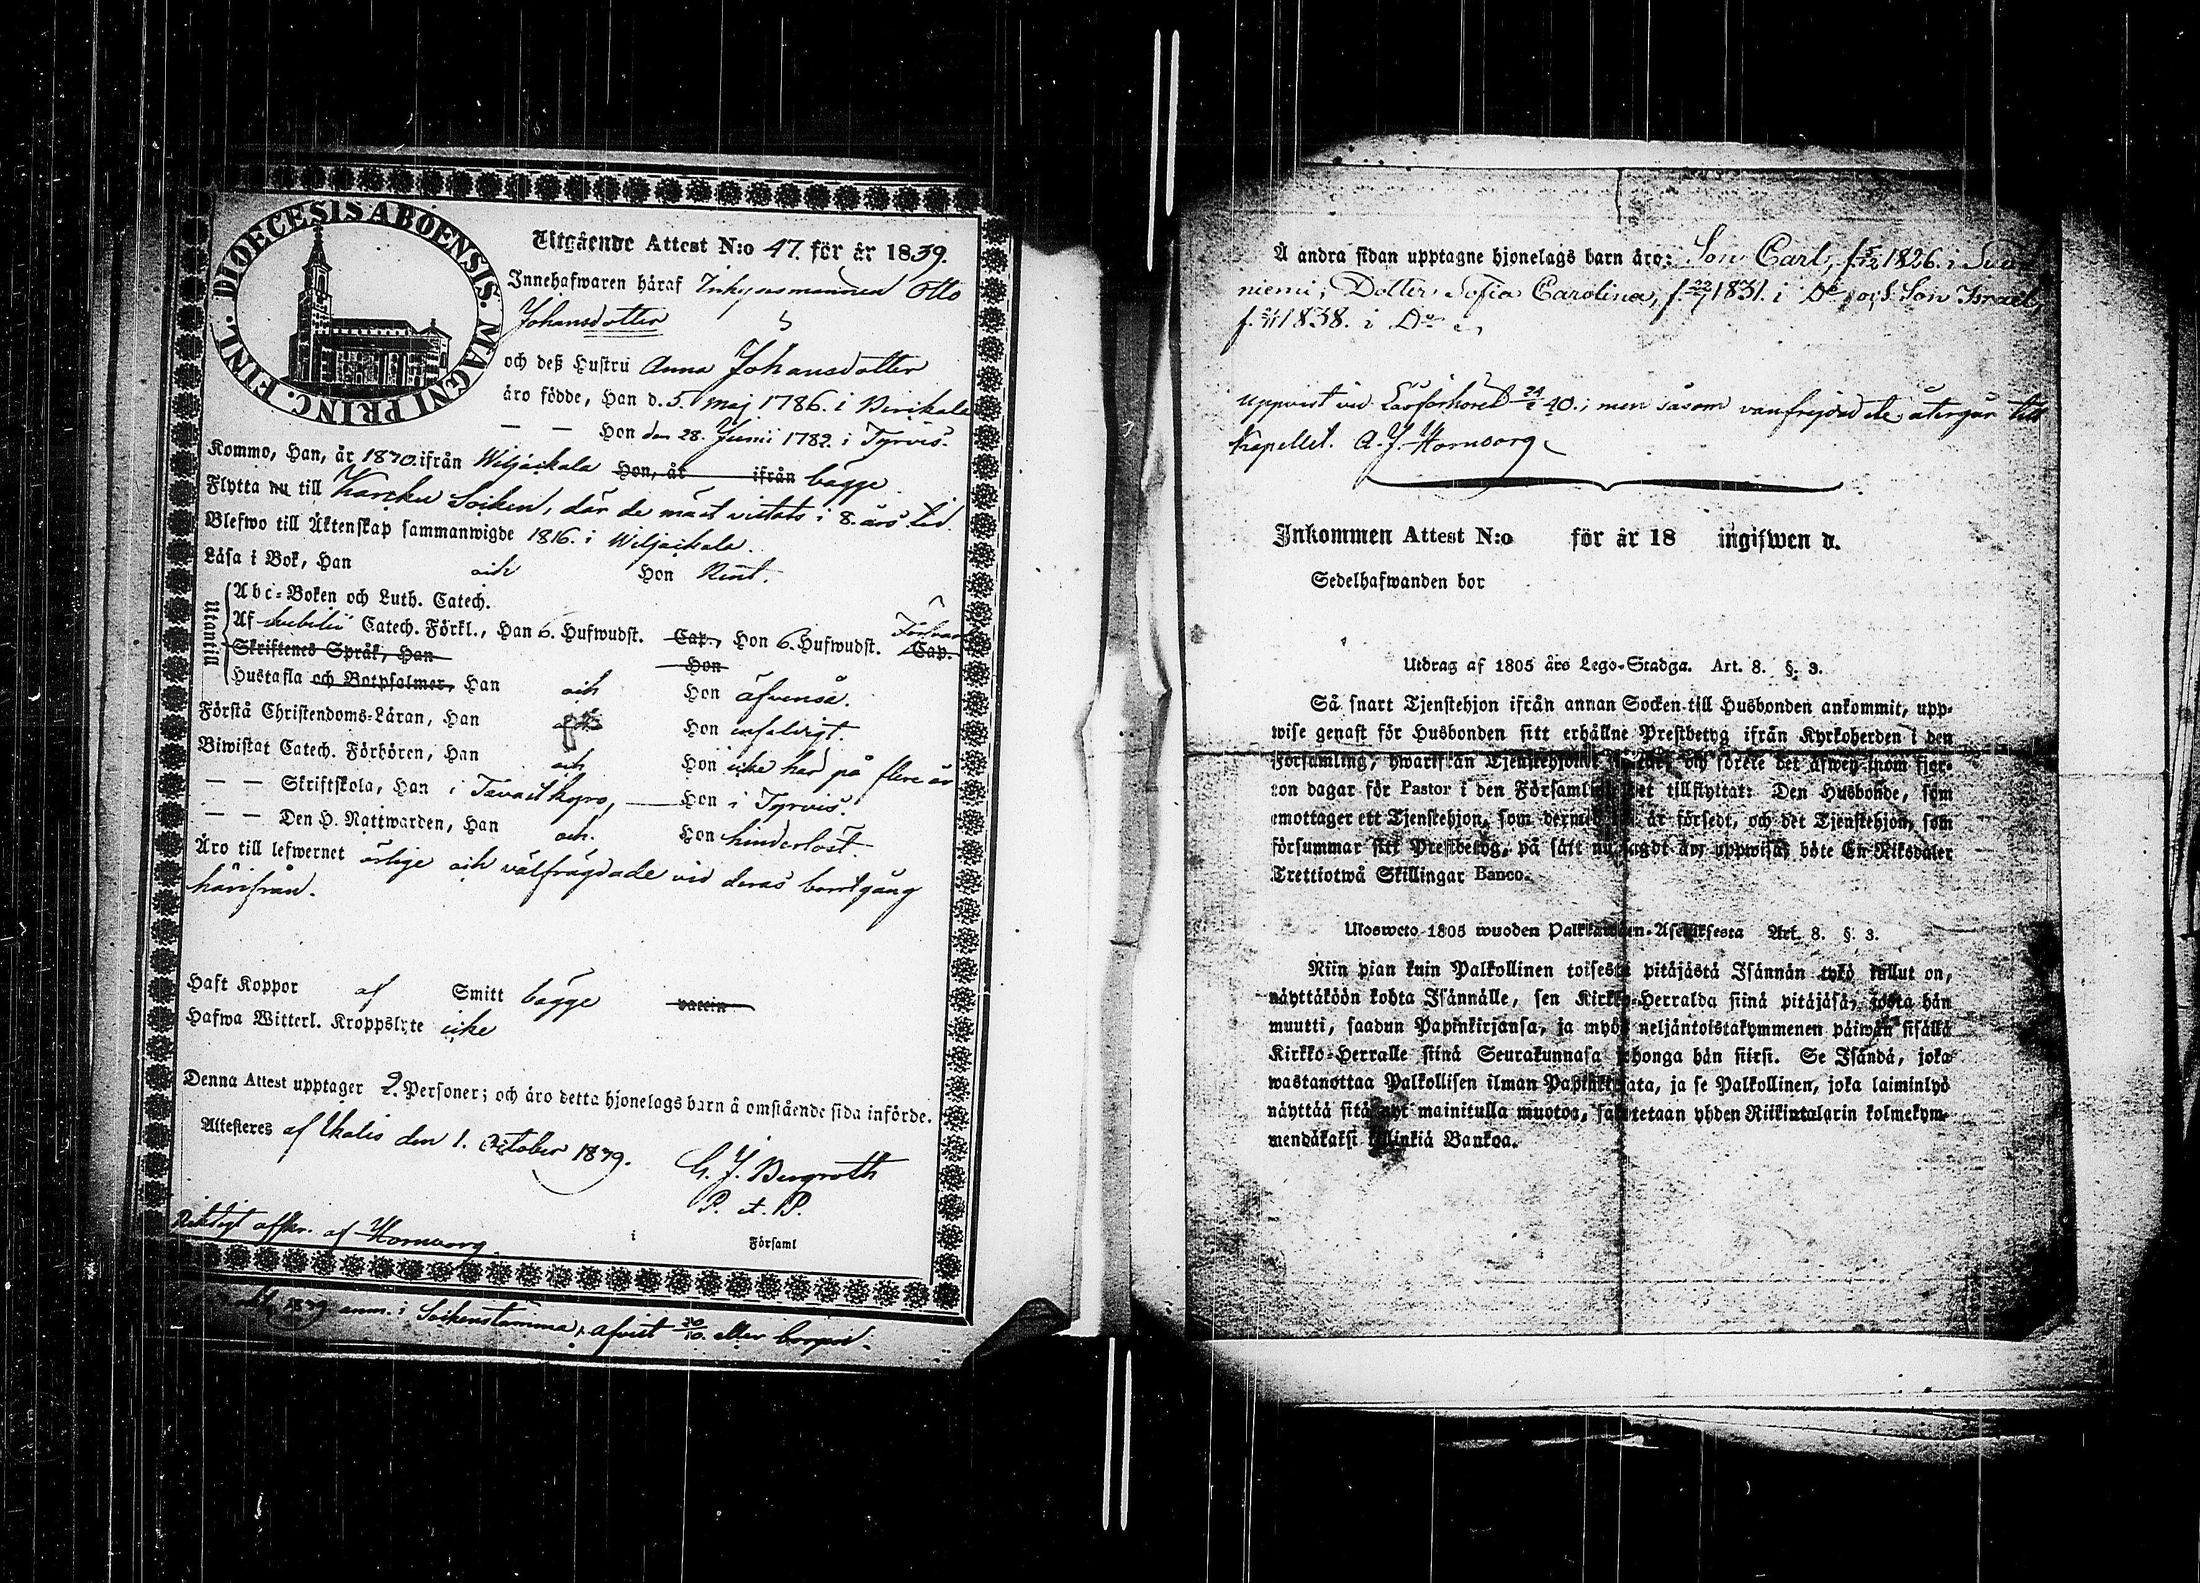 DIOECESIS ABOENSIS. MAGNI PRINC. FINL.
Utgående Attest N:o 47. för år 1839.
Innehafwaren häraf Inhysesmannen Otto
Johansdotter
och deß Hustru Anna Johansdotter
äro födde, Han d. 5. Maj 1786. i Birikala
— — Hon den 28. Junii 1782. i Tyrvis.
Kommo, Han, år 1830. ifrån Wiljakkala Hon, år ifrån bägge
Flytta nu till Karcku Socken, där de mäst vistats i 8. års tid.
Blefwo till Äktenskap sammanwigde 1816. i Wiljakkala.
Läsa i Bok, Han och Hon Rent.
Utantill
Abc-Boken och Luth. Catech.
Af Svebilii Catech. Förkl., Han 6. Hufwudst. Cap., Hon 6. Hufwudst. Cap.
Skriftenes Språk, Han Hon
Hustafla och Botpsalmer, Han och Hon äfvenså.
Förstå Christendoms-Läran, Han Hon enfaldigt.
Biwistat Catech. Förhören, Han och Hon icke har på flere år
— — Skriftskola, Han i Tavastkyro, Hon i Tyrvis.
— — Den H. Nattwarden, Han och Hon hinderlöst.
Äro till lefwernet ärlige och välfrägdade vid deras bortgång
härifrån.
Haft Koppor af Smitt bägge vaccin
Hafwa Witterl. Kroppslyte icke
Denna Attest upptager 2. Personer; och äro detta hjonelags barn å omstående sida införde.
Attesteras af Ikalis den 1. October 1839.
G. J. Bergroth
P. et. P.
Riktigt afskr. af Hornborg.
i Församl
1839 anm. i Sockenstämma, afvist 20/10. eller borgad.
Å andra sidan upptagne hjonelags barn äro: Son Carl, f. 1826. i
niemi, Dotter Sofia Carolina, f. 22/7 1831. i Do, och Son Israel,
f. 1838. i Do
uppvist vid Läsförhöret 24/2 40.; men såsom vanfrejdad de återgår till
Kapellet. A. J. Hornborg
Inkommen Attest N:o för år 18 ingifwen d.
Sedelhafwanden bor
Utdrag af 1805 års Lego-Stadga. Art. 8. §. 3.
Så snart Tjenstehjon ifrån annan Socken till Husbonden ankommit, upp-
wise genast för Husbonden sitt erhållne Prestbetyg ifrån Kyrkoherden i den
Församling, hwarifrån Tjenstehjonet och förete det äfwen inom fjor-
ton dagar för Pastor i den Församling det tillflyttat: Den Husbonde, som
emottager ett Tjenstehjon, som dermed ej är försedt, och det Tjenstehjon, som
försummar sitt Prestbetyg, på sätt nu sagdt är, uppwisa, böte En Riksdaler
Trettiotwå Skillingar Banco.
Ulosweto 1805 wuoden Palkkawäen-Asetuksesta Art. 8. §. 3.
Niin pian kuin Palkollinen toisesta pitäjästä Isännän tykö tullut on,
näyttäköön kohta Isännälle, sen Kirkko-Herralda siinä pitäjäsä, josta hän
muutti, saadun Papinkirjansa, ja myös neljäntoistakymmenen päiwän sisällä
Kirkko-Herralle siinä Seurakunnasa johonga hän siirsi. Se Isändä, joka
wastanottaa Palkollisen ilman Papinkirjata, ja se Palkollinen, joka laiminlyö
näyttää sitä nyt mainitulla muotoa, sakotetaan yhden Riikintalarin kolmekym-
mendäkaksi killinkiä Bankoa.